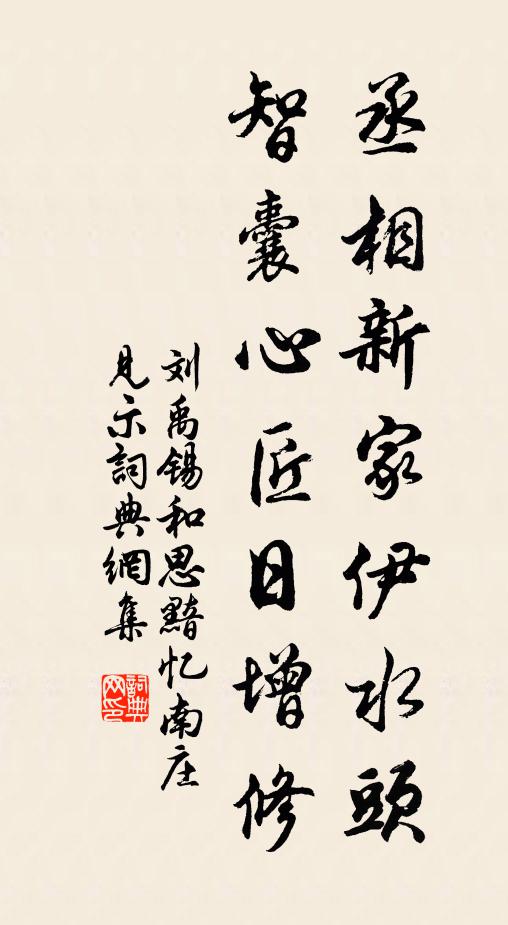 丞相新家伊水頭
智囊心匠日增修
刘禹锡和思黯忆南庄
見示詞典網集
詞典网印